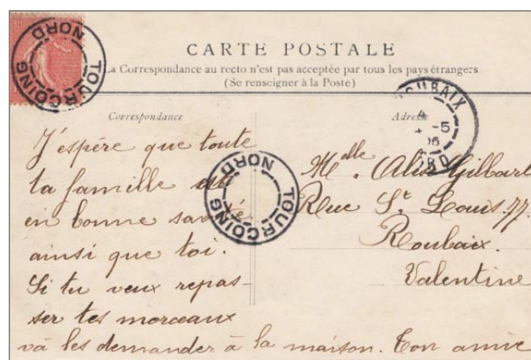 TOURCOING NORD
CARTE POSTALE
La Correspondance au recto n'est pas acceptée par tous les pays étrangers
(Se renseigner à la Poste)
ROUBAIX
NORD
Correspondance
Adresse
J'espère que toute
ta famille est
en bonne santé
ainsi que toi.
Si tu veux repas-
ser tes morceaux
và les demander à la maison. Ton amie
TOURCOING NORD
Melle. Alis Gilbart
Rue St Louis. 77
Roubaix.
Valentine